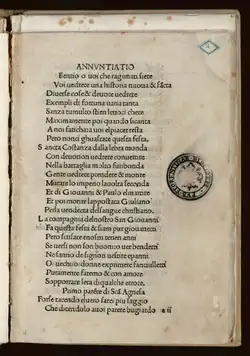 ANNVNTIATIO
Et tutto o uoi che ragunati siete
Voi uedrete una historia nuoua & sãcta
Diuerse cose & deuote uedrete
Exempli di fortuna uaria tanta
Sanza tumulto stien le uoci chete
Maximamente poi quando sicanta
A noi fatica a uoi el piacer resta
Pero non ci guastate questa festa.
Sancta Costanza dalla lebra monda
Con deuotion uedrete conuertire
Nella battaglia molto furibonda
Gente uedrete pendere & morire
Mutare lo imperio la uolta seconda
Et di Giouanni & Paulo el morire
Et poi morire lapostata Giuliano
Per la uendecta del sangue christiano.
La compagnia del nostro San Giouanni
Fa questa festa & siam pur giouinetti
Pero scusate enostri teneri anni
Se uersi non son buoni o uer ben detti
Ne sanno de signori uestire epanni
O uecchi o donne exprimere fanciulletti
Puramente faremo & con amore
Sopportate leta di qualche errore.
Primo parete di Scã Agnesa
Forse tacendo el uero sarei piu saggio
Che dicendolo a uoi parere bugiardo
a ii